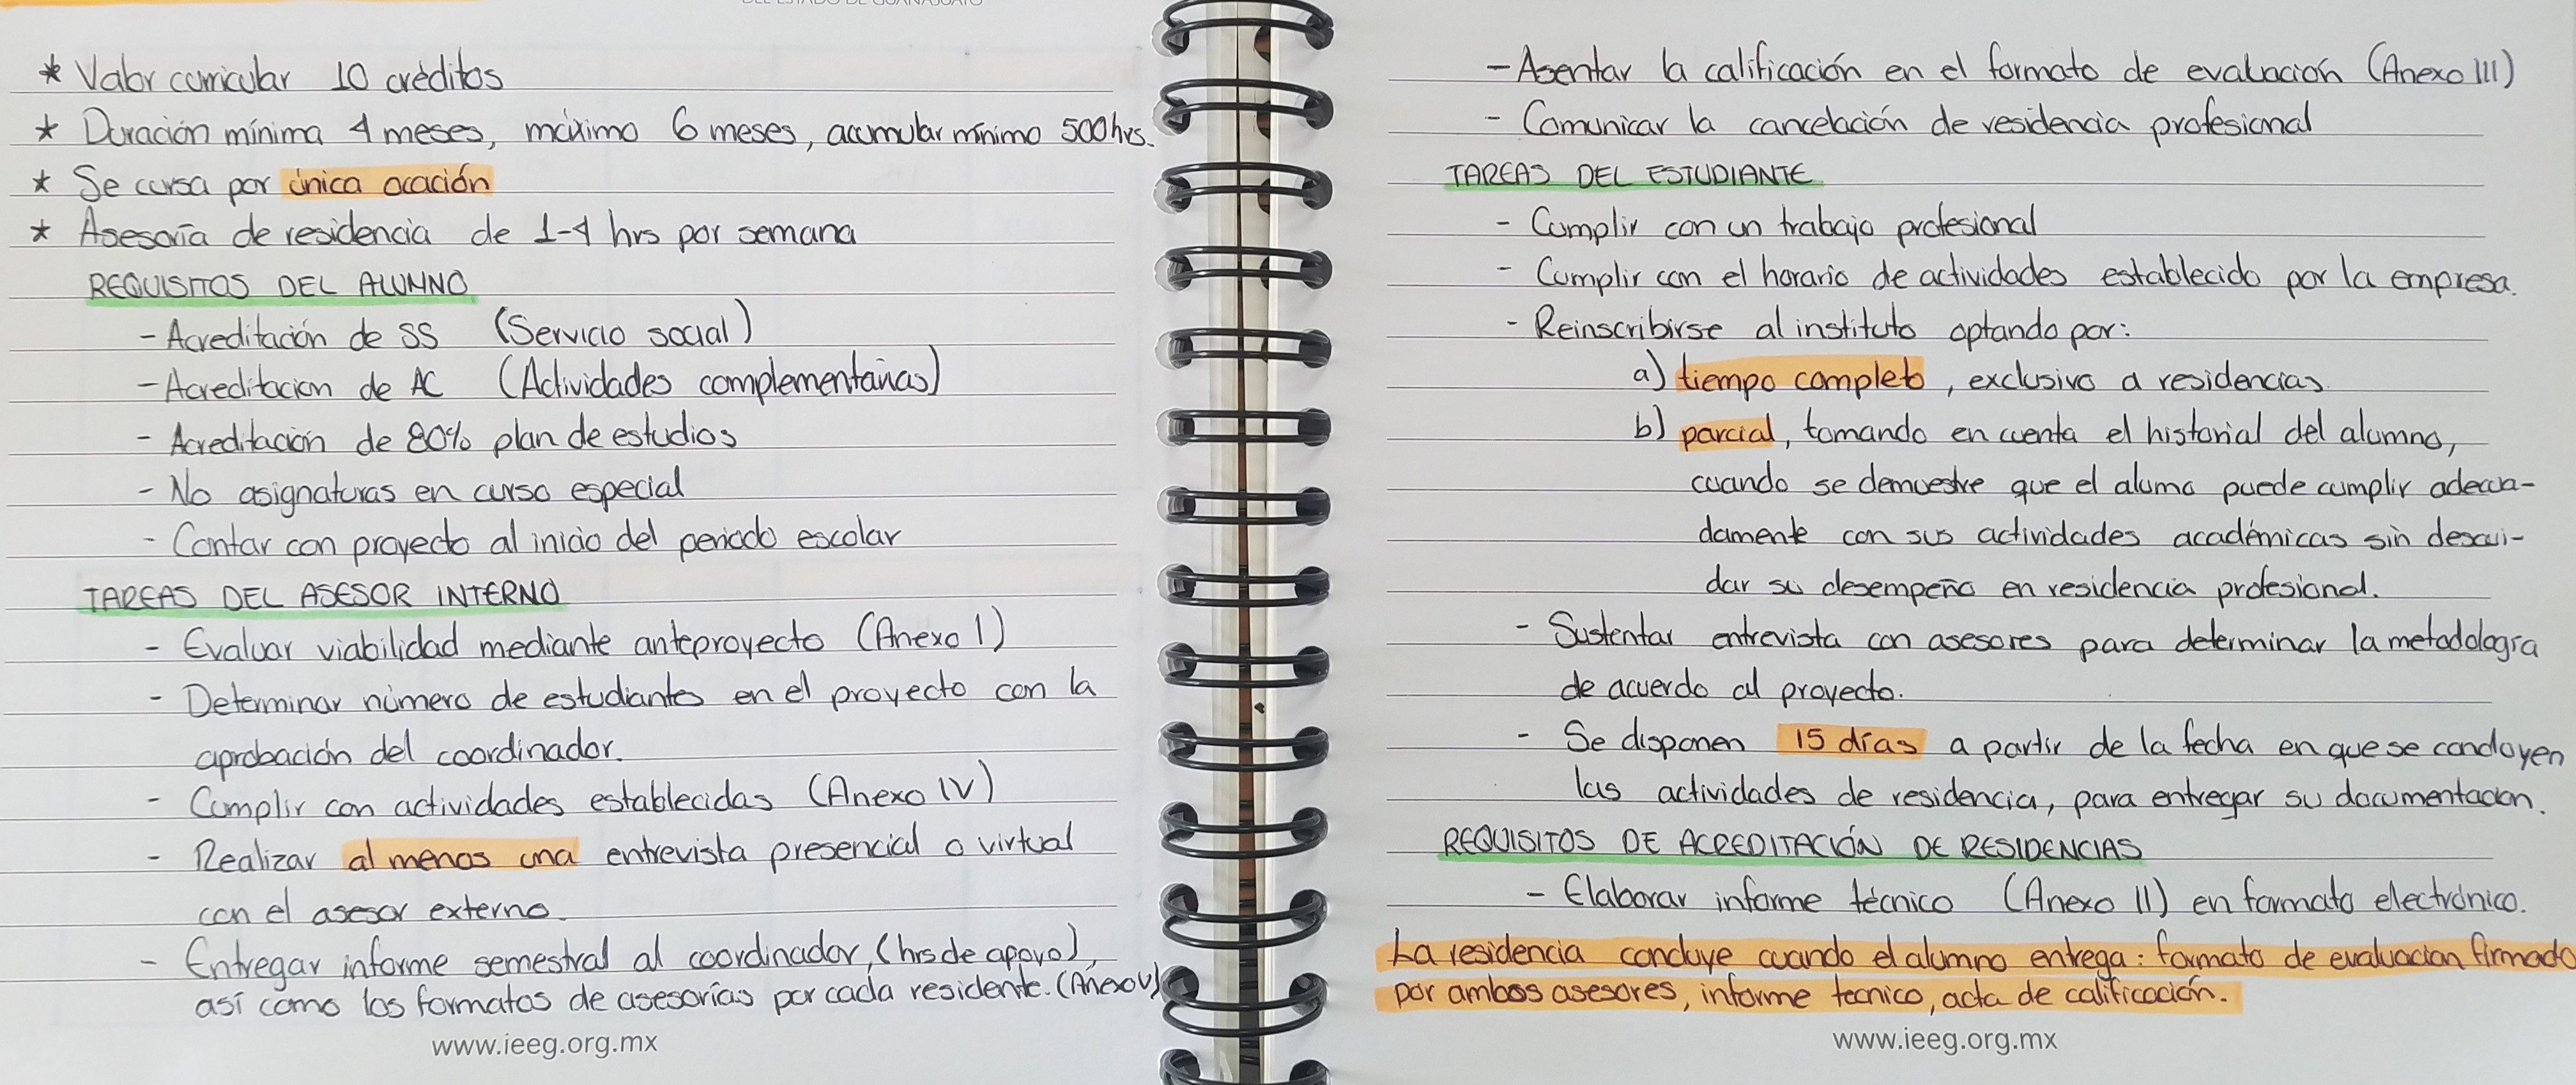 DEL ESTADO DE GUANAJUATO
* Valor curricular 10 créditos
* Duración mínima 4 meses, máximo 6 meses, acumular mínimo 500 hrs.
* Se cursa por única ocación
* Asesoría de residencia de 1-4 hrs por semana
REQUISITOS DEL ALUMNO
- Acreditación de SS (Servicio social)
- Acreditacion de AC (Actividades complementarias)
- Acreditación de 80% plan de estudios
- No asignaturas en curso especial
- Contar con proyecto al inicio del periodo escolar
TAREAS DEL ASESOR INTERNO
- Evaluar viabilidad mediante anteproyecto (Anexo I)
- Determinar número de estudiantes en el proyecto con la
aprobación del coordinador.
- Cumplir con actividades establecidas (Anexo IV)
- Realizar al menos una entrevista presencial o virtual
con el asesor externo.
- Entregar informe semestral al coordinador, (hrs de apoyo),
así como los formatos de asesorías por cada residente. (Anexo V)
www.ieeg.org.mx
- Asentar la calificación en el formato de evaluación (Anexo III)
- Comunicar la cancelación de residencia profesional
TAREAS DEL ESTUDIANTE
- Cumplir con un trabajo profesional
- Cumplir con el horario de actividades establecido por la empresa.
- Reinscribirse al instituto optando por:
a) tiempo completo, exclusivo a residencias
b) parcial, tomando en cuenta el historial del alumno,
cuando se demuestre que el alumo puede cumplir adecua-
damente con sus actividades académicas sin descui-
dar su desempeño en residencia profesional.
- Sustentar entrevista con asesores para determinar la metodología
de acuerdo al proyecto.
- Se disponen 15 días a partir de la fecha en que se concluyen
las actividades de residencia, para entregar su documentacion.
REQUISITOS DE ACREDITACIÓN DE RESIDENCIAS
- Elaborar informe técnico (Anexo II) en formato electrónico.
La residencia concluye cuando el alumno entrega: formato de evaluacion firmado
por ambos asesores, informe tecnico, acta de calificación.
www.ieeg.org.mx